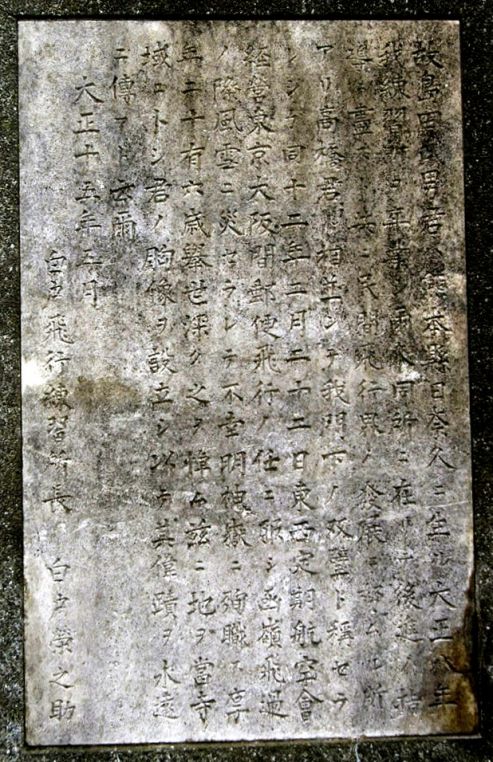 故島田武男君ハ熊本縣日奈久ニ生ル大正八年
我練習所ヲ卒業シ爾今同所ニ在リテ後進ノ指
導ニ盡シ共ニ民間飛行界ノ發展ニ努ムル所
アリ高橋君ト相並シテ我門下ノ双璧ト稱セラ
レシヲ同十二年二月二十二日東西定期航空會
經営東京大阪間郵便飛行ノ任ニ服シ函嶺飛過
ノ際風雲ニ災セラレテ不幸明神嶽ニ殉職ス享
年二十有六歳擧世深ク之ヲ悼ム玆ニ地ヲ當寺
域ニトシ君ノ胸像ヲ設立シ以テ其偉蹟ヲ永遠
ニ傳フト云爾
大正十五年五月
白戸飛行練習所長 白戸榮之助